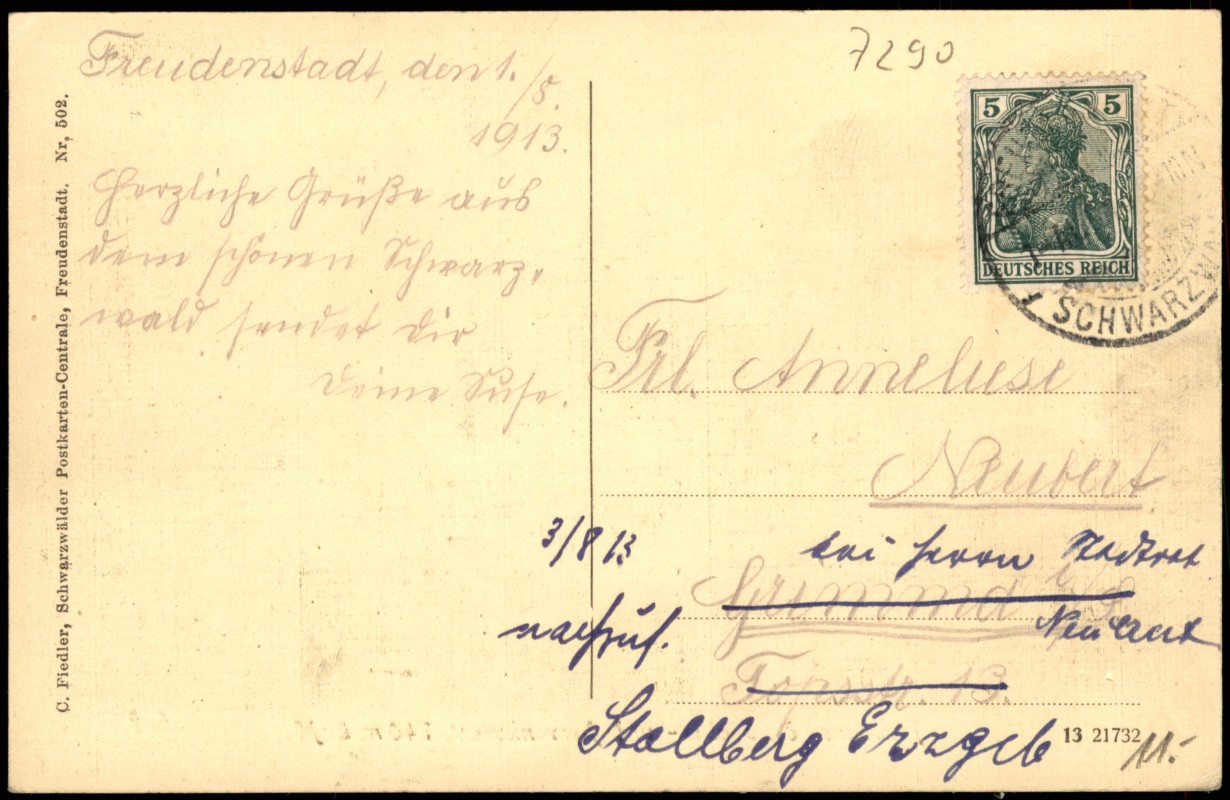 7290
Freudenstadt, den 1./8.
1913.
Herzliche Grüße aus
dem schönen Schwarz-
wald sendet Dir
Deine Suse.
C. Fiedler, Schwarzwälder Postkarten-Centrale, Freudenstadt. Nr, 502.
5 5
DEUTSCHES REICH
SCHWARZW
Frl. Anneliese
Neubert
3/8 13
bei Herrn Stadtrat
Neubert
Grimma i/S
nachzus.
13.
Stollberg Erzgeb
13 21732
11.-